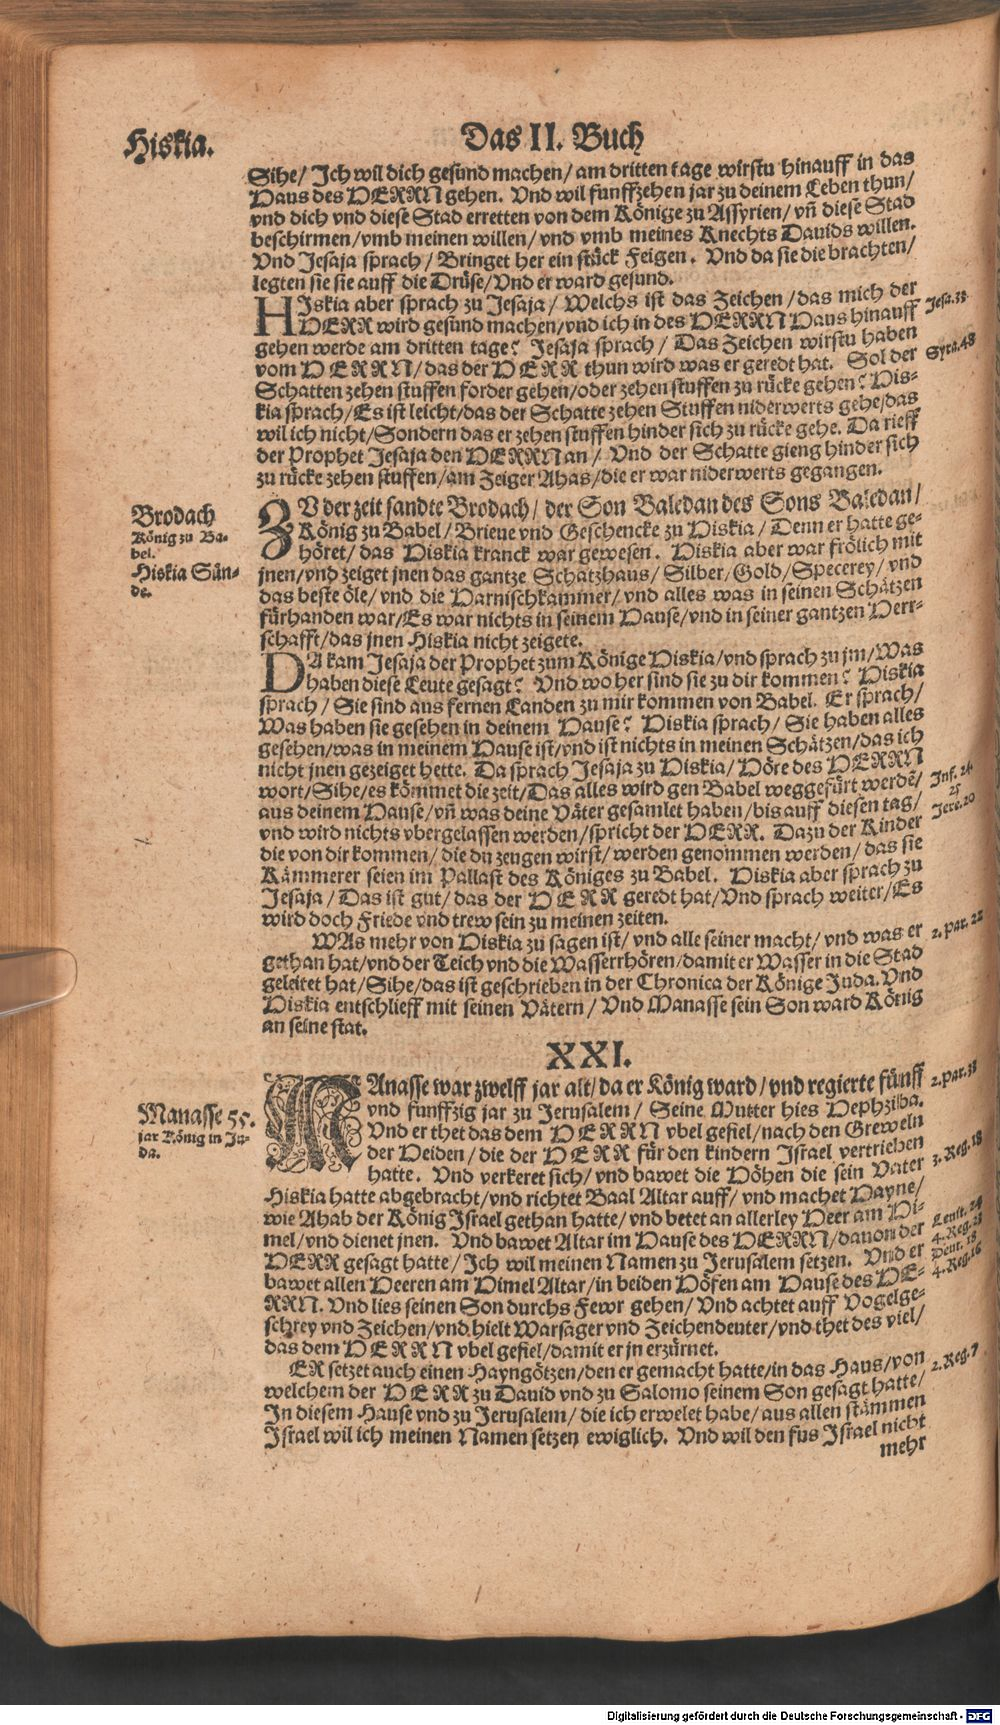 Hiskia.
Das II. Buch
Sihe/ Jch wil dich gesund machen/ am dritten tage wirstu hinauff in das
Haus des HERRN gehen. Vnd wil funffzehen jar zu deinem Leben thun/
vnd dich vnd diese Stad erretten von dem Könige zu Assyrien/ vñ diese Stad
beschirmen/ vmb meinen willen/ vnd vmb meines Knechts Dauids willen.
Vnd Jesaja sprach/ Bringet her ein stück Feigen. Vnd da sie die brachten/
legten sie sie auff die Drüse/ Vnd er ward gesund.
HJskia aber sprach zu Jesaja/ Welchs ist das Zeichen/ das mich der
HERR wird gesund machen/ vnd ich in des HERRN Haus hinauff
gehen werde am dritten tage? Jesaja sprach/ Das Zeichen wirstu haben
vom HERRN/ das der HERR thun wird was er geredt hat. Sol der
Schatten zehen stuffen forder gehen/ oder zehen stuffen zu rücke gehen? His-
kia sprach/ Es ist leicht/ das der Schatte zehen Stuffen niderwerts gehe/ das
wil ich nicht/ Sondern das er zehen stuffen hinder sich zu rücke gehe. Da rieff
der Prophet Jesaja den HERRN an/ Vnd der Schatte gieng hinder sich
zu rücke zehen stuffen/ am Zeiger Ahas/ die er war niderwerts gegangen.
Jesa. 38
Syra. 48
Brodach
König zu Ba-
bel.
Hiskia Sün-
de.
ZV der zeit sandte Brodach/ der Son Baledan des Sons Baledan/
König zu Babel/ Brieue vnd Geschencke zu Hiskia/ Denn er hatte ge-
höret/ das Hiskia kranck war gewesen. Hiskia aber war frölich mit
jnen/ vnd zeiget jnen das gantze Schatzhaus/ Silber/ Gold/ Specerey/ vnd
das beste öle/ vnd die Harnischkammer/ vnd alles was in seinen Schätzen
fürhanden war/ Es war nichts in seinem Hause/ vnd in seiner gantzen Herr-
schafft/ das jnen Hiskia nicht zeigete.
DA kam Jesaja der Prophet zum Könige Hiskia/ vnd sprach zu jm/ Was
haben diese Leute gesagt? Vnd wo her sind sie zu dir kommen? Hiskia
sprach/ Sie sind aus fernen Landen zu mir kommen von Babel. Er sprach/
Was haben sie gesehen in deinem Hause? Hiskia sprach/ Sie haben alles
gesehen/ was in meinem Hause ist/ vnd ist nichts in meinen Schätzen/ das ich
nicht jnen gezeiget hette. Da sprach Jesaja zu Hiskia/ Höre des HERRN
wort/ Sihe/ es kömmet die zeit/ Das alles wird gen Babel weggefürt werdē/
aus deinem Hause/ vñ was deine Väter gesamlet haben/ bis auff diesen tag/
vnd wird nichts vbergelassen werden/ spricht der HERR. Dazu der Kinder
die von dir kommen/ die du zeugen wirst/ werden genommen werden/ das sie
Kämmerer seien im Pallast des Königes zu Babel. Hiskia aber sprach zu
Jesaja/ Das ist gut/ das der HERR geredt hat/ Vnd sprach weiter/ Es
wird doch Friede vnd trew sein zu meinen zeiten.
Inf. 24.
25
Jere. 20
WAs mehr von Hiskia zu sagen ist/ vnd alle seiner macht/ vnd was er
gethan hat/ vnd der Teich vnd die Wasserrhören/ damit er Wasser in die Stad
geleitet hat/ Sihe/ das ist geschrieben in der Chronica der Könige Juda. Vnd
Hiskia entschlieff mit seinen Vätern/ Vnd Manasse sein Son ward König
an seine stat.
2. Par. 22
XXI.
Manasse 55.
jar König in Ju-
da.
MAnasse war zwelff jar alt/ da er König ward/ vnd regierte fünff
vnd funffzig jar zu Jerusalem/ Seine Mutter hies Hephziba.
Vnd er thet das dem HERRN vbel gefiel/ nach den Greweln
der Heiden/ die der HERR für den kindern Israel vertrieben
hatte. Vnd verkeret sich/ vnd bawet die Höhen die sein Vater
Hiskia hatte abgebracht/ vnd richtet Baal Altar auff/ vnd machet Hayne/
wie Ahab der König Israel gethan hatte/ vnd betet an allerley Heer am Hi-
mel/ vnd dienet jnen. Vnd bawet Altar im Hause des HERRN/ dauon der
HERR gesagt hatte/ Jch wil meinen Namen zu Jerusalem setzen. Vnd er
bawet allen Heeren am Himel Altar/ in beiden Höfen am Hause des HE-
RRN. Vnd lies seinen Son durchs Fewr gehen/ Vnd achtet auff Vogelge-
schrey vnd Zeichen/ vnd hielt Warsager vnd Zeichendeuter/ vnd thet des viel/
das dem HERRN vbel gefiel/ damit er jn erzürnet.
2. Par. 33
3. Reg. 18
Leuit. 20
4. Reg. 23
Deut. 18
4. Reg. 16
ER setzet auch einen Hayngötzen/ den er gemacht hatte/ in das Haus/ von
welchem der HERR zu Dauid vnd zu Salomo seinem Son gesagt hatte/
Jn diesem Hause vnd zu Jerusalem/ die ich erwelet habe/ aus allen stämmen
Israel wil ich meinen Namen setzen ewiglich. Vnd wil den fus Israel nicht
mehr
2. Reg. 7
Digitalisierung gefördert durch die Deutsche Forschungsgemeinschaft - DFG